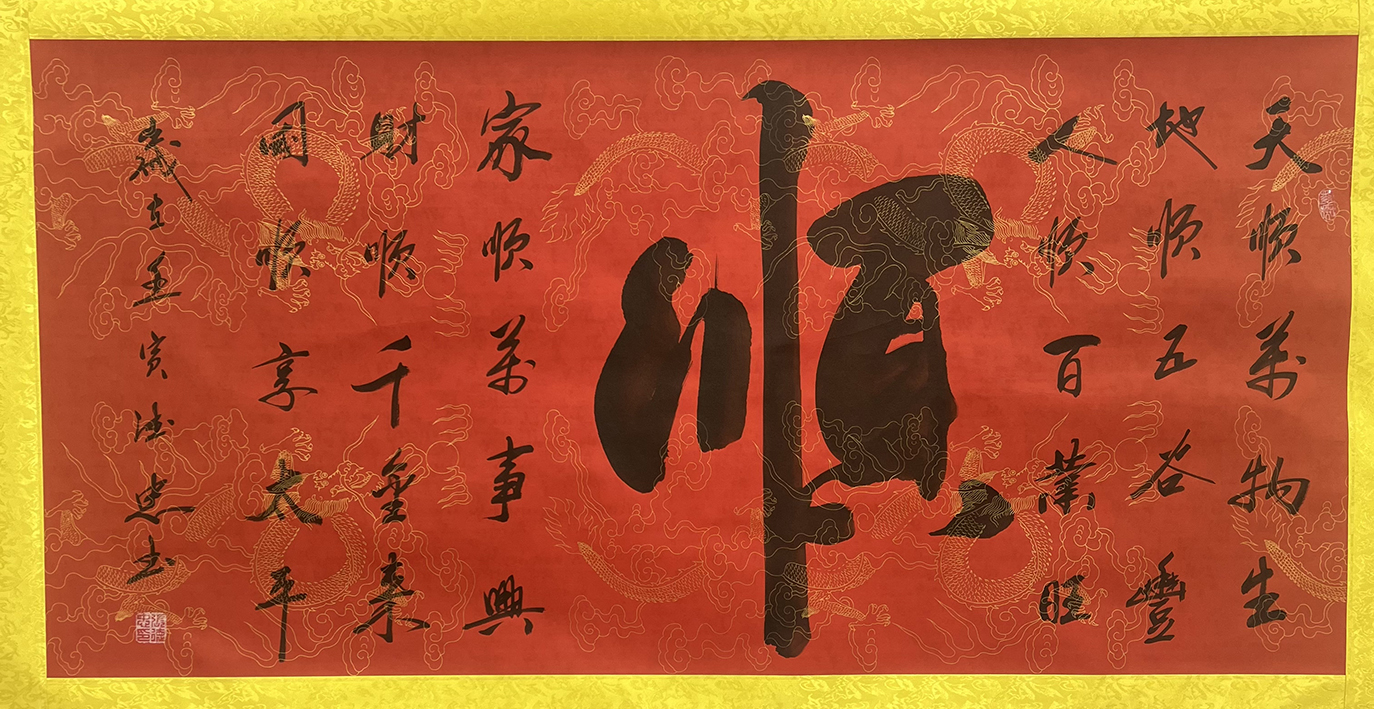 天順萬物生
地順五谷豐
人順百業旺
順
家順萬事興
財順千金來
國順享太平
歲在壬寅德忠書